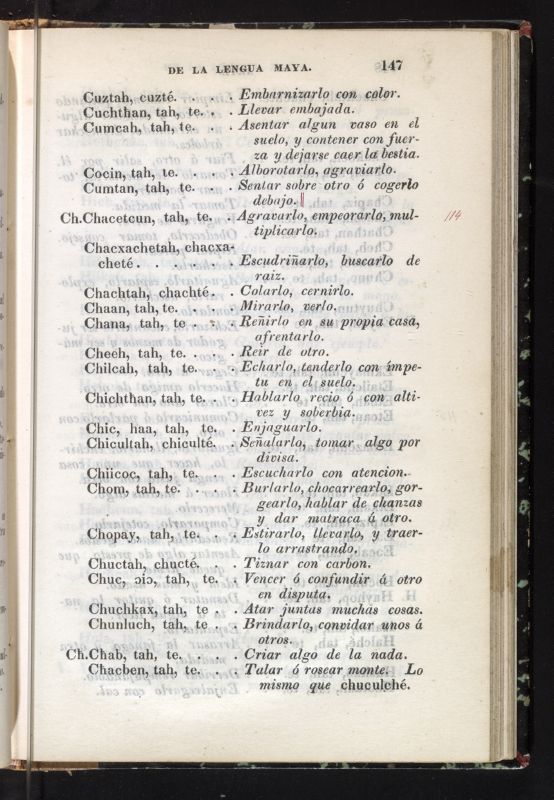 DE LA LENGUA MAYA. 147
Cuztah, cuzté. . . . . Embarnizarlo con color.
Cuchthan, tah, te. . . Llevar embajada.
Cumcah, tah, te. . . Asentar algun vaso en el
suelo, y contener con fuer-
za y dejarse caer la bestia.
Cocin, tah, te. . . . Alborotarlo, agraviarlo.
Cumtan, tah, te. . . Sentar sobre otro ó cogerlo
debajo.
Ch.Chacetcun, tah, te. . . Agravarlo, empeorarlo, mul-
tiplicarlo.
114
Chacxachetah, chacxa-
cheté . . . . . . Escudriñarlo, buscarlo de
raiz.
Chachtah, chachté. . Colarlo, cernirlo.
Chaan, tah, te. . . . Mirarlo, verlo.
Chana, tah, te . . . . Reñirlo en su propia casa,
afrentarlo.
Cheeh, tah, te. . . . Reir de otro.
Chilcah, tah, te. . . Echarlo, tenderlo con ímpe-
tu en el suelo.
Chichthan, tah, te. . . Hablarlo, recio ó con alti-
vez y soberbia.
Chic, haa, tah, te. . Enjaguarlo.
Chicultah, chiculté. . Señalarlo, tomar algo por
divisa.
Chiicoc, tah, te. . . Escucharlo con atencion.
Chom, tah, te. . . . . Burlarlo, chocarrearlo, gor-
gearlo, hablar de chanzas
y dar matraca á otro.
Chopay, tah, te. . . . Estirarlo, llevarlo, y traer-
lo arrastrando.
Chuctah, chucté. . . Tiznar con carbon.
Chuc, ɔiɔ, tah, te. . Vencer ó confundir á otro
en disputa.
Chuchkax, tah, te . . Atar juntas muchas cosas.
Chunluch, tah, te . . Brindarlo, convidar unos á
otros.
Ch.Chab, tah, te. . . . Criar algo de la nada.
Chacben, tah, te. . . . Talar ó rosear monte. Lo
mismo que chuculché.